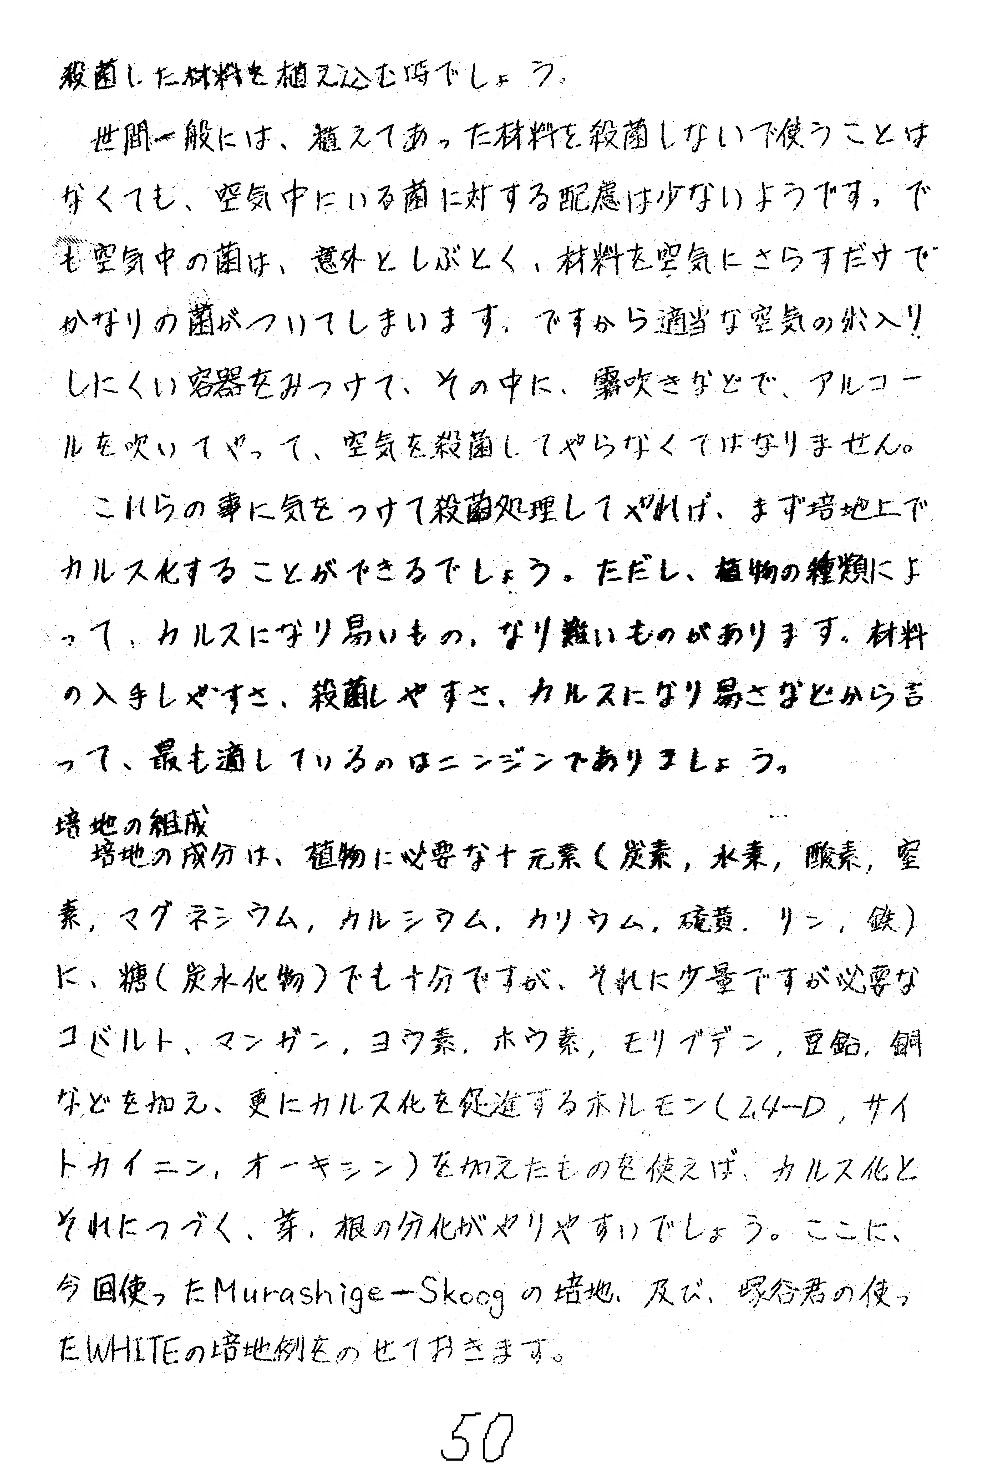 殺菌した材料を植え込む時でしょう。
世間一般には、植えてあった材料を殺菌しないで使うことは
なくても、空気中にいる菌に対する配慮は少ないようです。で
も空気中の菌は、意外としぶとく、材料を空気にさらすだけで
かなりの菌がついてしまいます。ですから適当な空気の出入り
しにくい容器をみつけて、その中に、霧吹きなどで、アルコー
ルを吹いてやって、空気を殺菌してやらなくてはなりません。
これらの事に気をつけて殺菌処理してやれば、まず培地上で
カルス化することができるでしょう。ただし、植物の種類によ
って、カルスになり易いもの、なり難いものがあります。材料
の入手しやすさ、殺菌しやすさ、カルスになり易さなどから言
って、最も適しているのはニンジンでありましょう。
培地の組成
培地の成分は、植物に必要な十元素(炭素,水素,酸素,窒
素,マグネシウム,カルシウム,カリウム,硫黄.リン,鉄)
に、糖(炭水化物)でも十分ですが、それに少量ですが必要な
コバルト、マンガン,ヨウ素,ホウ素,モリブデン,亜鉛,銅
などを加え、更にカルス化を促進するホルモン(2,4-D,サイ
トカイニン,オーキシン)を加えたものを使えば、カルス化と
それにつづく、芽,根の分化がやりやすいでしょう。ここに、
今回使ったMurashige-Skoogの培地、及び、塚谷君の使っ
たWHITEの培地例をのせておきます。
50